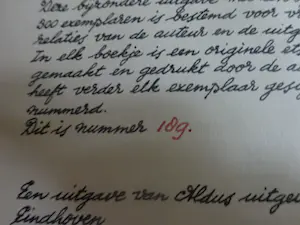 Deze bijzondere uitgave met een
300 exemplaren is bestemd voor v
relaties van de auteur en de uitg
In elk boekje is een originele ets
gemaakt en gedrukt door de a
heeft verder elk exemplaar ges
nummerd.
Dit is nummer 189.
Een uitgave van Aldus uitge
Eindhoven